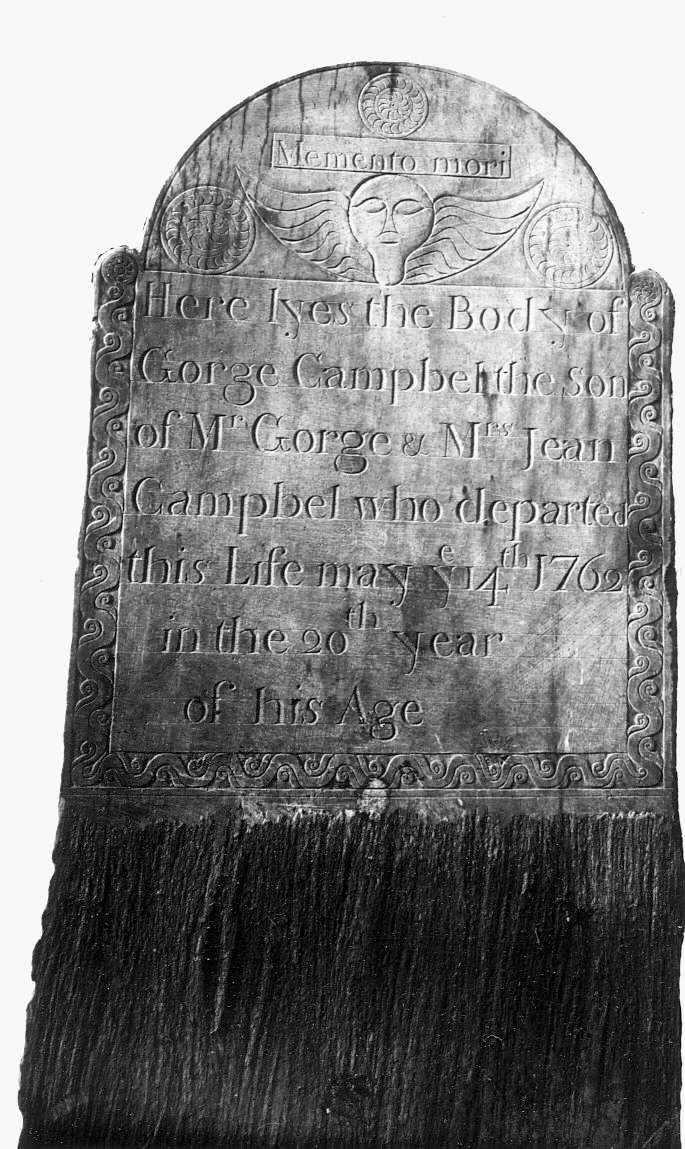 Memento mori
Here lyes the Body of
Gorge Campbel the Son
of Mr Gorge & Mrs Jean
Campbel who departed
this Life may ye 14th 1762
in the 20th year
of his Age